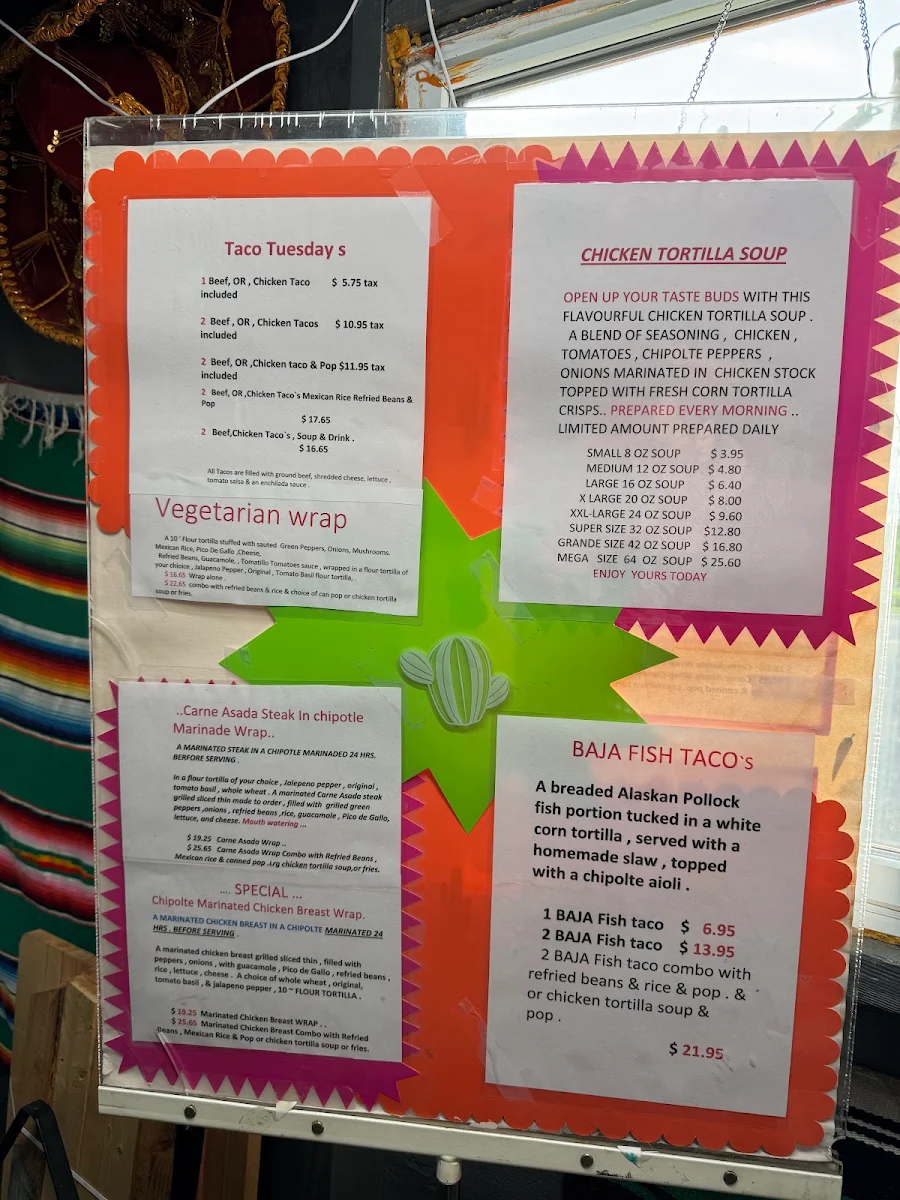 Taco Tuesday s
1 Beef, OR , Chicken Taco $ 5.75 tax
included
2 Beef , OR , Chicken Tacos $ 10.95 tax
included
2 Beef, OR ,Chicken taco & Pop $11.95 tax
included
2 Beef, OR ,Chicken Taco`s Mexican Rice Refried Beans &
Pop
$ 17.65
2 Beef,Chicken Taco`s , Soup & Drink .
$ 16.65
All Tacos are filled with ground beef, shredded cheese, lettuce ,
tomato salsa & an enchilada sauce .
Vegetarian wrap
A 10 ' Flour tortilla stuffed with sauted Green Peppers, Onions, Mushrooms.
Mexican Rice, Pico De Gallo ,Cheese,
Refried Beans, Guacamole, , Tomatillo Tomatoes sauce , wrapped in a flour tortilla of
your chioice , Jalapeno Pepper , Original , Tomato Basil flour tortilla, .
$ 16.65 Wrap alone .
$ 22.65 combo with refried beans & rice & choice of can pop or chicken tortilla
soup or fries.
CHICKEN TORTILLA SOUP
OPEN UP YOUR TASTE BUDS WITH THIS
FLAVOURFUL CHICKEN TORTILLA SOUP .
A BLEND OF SEASONING , CHICKEN ,
TOMATOES , CHIPOLTE PEPPERS ,
ONIONS MARINATED IN CHICKEN STOCK
TOPPED WITH FRESH CORN TORTILLA
CRISPS.. PREPARED EVERY MORNING ..
LIMITED AMOUNT PREPARED DAILY
SMALL 8 OZ SOUP $ 3.95
MEDIUM 12 OZ SOUP $ 4.80
LARGE 16 OZ SOUP $ 6.40
X LARGE 20 OZ SOUP $ 8.00
XXL-LARGE 24 OZ SOUP $ 9.60
SUPER SIZE 32 OZ SOUP $12.80
GRANDE SIZE 42 OZ SOUP $ 16.80
MEGA SIZE 64 OZ SOUP $ 25.60
ENJOY YOURS TODAY
..Carne Asada Steak In chipotle
Marinade Wrap..
A MARINATED STEAK IN A CHIPOTLE MARINADED 24 HRS.
BERFORE SERVING .
In a flour tortilla of your choice , Jalepeno pepper , original ,
tomato basil , whole wheat . A marinated Carne Asada steak
grilled sliced thin made to order , filled with grilled green
peppers ,onions , refried beans ,rice, guacamole , Pico de Gallo,
lettuce, and cheese. Mouth watering ...
$ 19.25 Carne Asada Wrap ..
$ 25.65 Carne Asada Wrap Combo with Refried Beans ,
Mexican rice & canned pop .Lrg chicken tortilla soup,or fries.
.... SPECIAL ...
Chipolte Marinated Chicken Breast Wrap.
A MARINATED CHICKEN BREAST IN A CHIPOLTE MARINATED 24
HRS . BEFORE SERVING .
A marinated chicken breast grilled sliced thin , filled with
peppers , onions , with guacamole , Pico de Gallo , refried beans ,
rice , lettuce , cheese . A choice of whole wheat , original,
tomato basil , & jalapeno pepper , 10 " FLOUR TORTILLA .
$ 19.25 Marinated Chicken Breast WRAP . .
$ 25.65 Marinated Chicken Breast Combo with Refried
Beans , Mexican Rice & Pop or chicken tortilla soup or fries.
BAJA FISH TACO`s
A breaded Alaskan Pollock
fish portion tucked in a white
corn tortilla , served with a
homemade slaw , topped
with a chipolte aioli .
1 BAJA Fish taco $ 6.95
2 BAJA Fish taco $ 13.95
2 BAJA Fish taco combo with
refried beans & rice & pop . &
or chicken tortilla soup &
pop .
$ 21.95